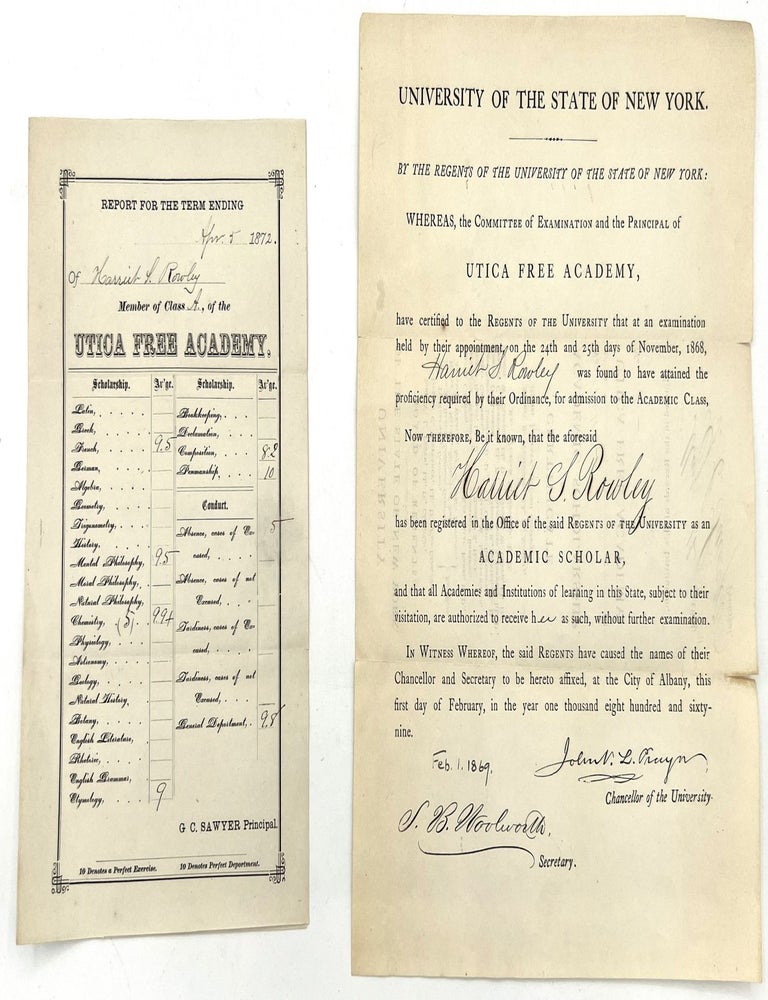 REPORT FOR THE TERM ENDING
Apr. 5 1872.
Of Harriet S. Rowley
Member of Class A., of the
UTICA FREE ACADEMY,
Scholarship. Av'ge. Scholarship. Av'ge.
Latin,
Greek,
French, 9.5
German,
Algebra,
Geometry,
Trigonometry,
History,
Mental Philosophy, 9.5
Moral Philosophy,
Natural Philosophy,
Chemistry, (5) 9.9+
Physiology,
Astronomy,
Geology,
Natural History,
Botany,
English Literature,
Rhetoric,
English Grammar,
Etymology, 9
Bookkeeping,
Declamation,
Composition, 8.2
Penmanship, 10
Conduct.
Absence, cases of Ex- 5
cused,
Absence, cases of not
Excused,
Tardiness, cases of Ex-
cused,
Tardiness, cases of not
Excused,
General Department, 9.8
G. C. SAWYER Principal.
10 Denotes a Perfect Exercise. 10 Denotes Perfect Department.
UNIVERSITY OF THE STATE OF NEW YORK.
BY THE REGENTS OF THE UNIVERSITY OF THE STATE OF NEW YORK:
WHEREAS, the COMMITTEE OF EXAMINATION and the PRINCIPAL of
UTICA FREE ACADEMY,
have certified to the REGENTS OF THE UNIVERSITY that at an examination
held by their appointment, on the 24th and 25th days of November, 1868,
Harriet S. Rowley was found to have attained the
proficiency required by their Ordinance, for admission to the ACADEMIC CLASS,
Now THEREFORE, Be it known, that the aforesaid
Harriet S. Rowley
has been registered in the Office of the said REGENTS OF THE UNIVERSITY as an
ACADEMIC SCHOLAR,
and that all Academies and Institutions of learning in this State, subject to their
visitation, are authorized to receive her as such, without further examination.
IN WITNESS WHEREOF, the said REGENTS have caused the names of their
Chancellor and Secretary to be hereto affixed, at the City of Albany, this
first day of February, in the year one thousand eight hundred and sixty-
nine.
Feb. 1. 1869. John V. L. Pruyn,
Chancellor of the University.
S. B. Woolworth,
Secretary.